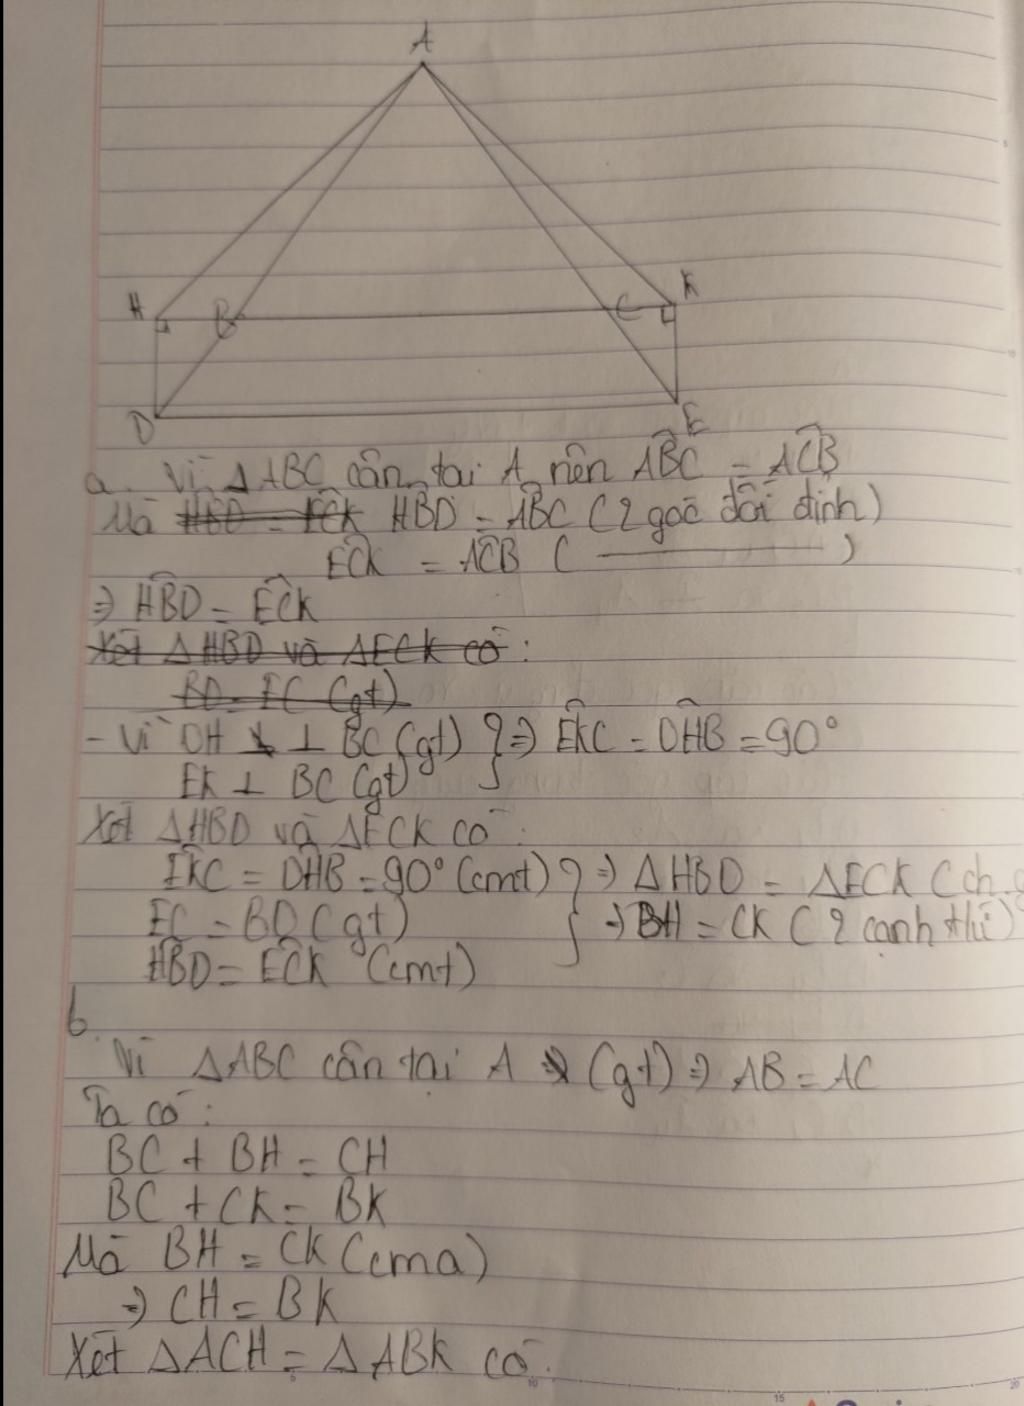 A
H
B
C
K
D
E
a. Vì △ABC cân tại A nên ABC̑ = ACB̑
Mà HBD = ECK HBD = ABC (2 góc đối đỉnh)
ECK = ACB ( ——— )
⇒ HBD = ECK
Xét △HBD và △ECK có:
BD = EC (gt)
- Vì DH ⊥ BC (gt) } ⇒ EKC = DHB = 90°
EK ⊥ BC (gt)
Xét △HBD và △ECK có:
EKC = DHB = 90° (cmt) } ⇒ △HBD = △ECK (ch.
EC = BD (gt) ⇒ BH = CK (2 cạnh tứ)
HBD = ECK (cmt)
b.
Vì △ABC cân tại A (gt) ⇒ AB = AC
Ta có:
BC + BH = CH
BC + CK = BK
Mà BH = CK (cma)
⇒ CH = BK
Xét △ACH = △ABK có: